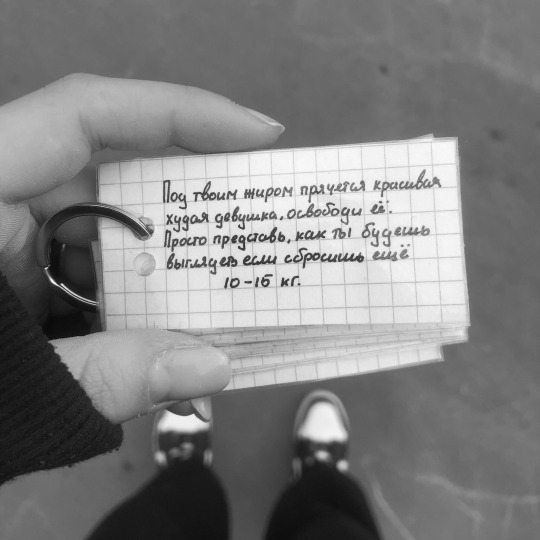 Под твоим жиром прячется красивая
худая девушка, освободи её.
Просто представь, как ты будешь
выглядеть если сбросишь ещё
10-15 кг.